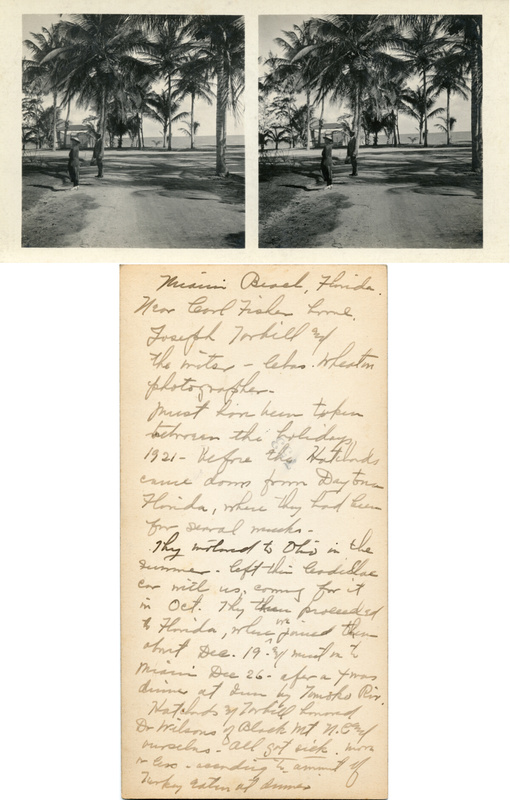 Miami Beach, Florida.
Near Carl Fisher home.
Joseph Torbill &
the writer - Chas. Wheaton
photographer -
Must have been taken
between the holidays,
1921 - before the
came down from Daytona
Florida, where they had been
for several weeks -
They motored to Ohio in the
summer - left this Cadillac
car with us, coming for it
in Oct. They then proceeded
to Florida, where we joined them
about Dec. 19 - & went on to
Miami Dec 26 - after a Xmas
dinner at Inn by Tomoka Riv.
& Torbill
Dr Wilsons of Black Mt N.C. &
ourselves - All got sick more
or less - according to amount of
Turkey eaten at dinner